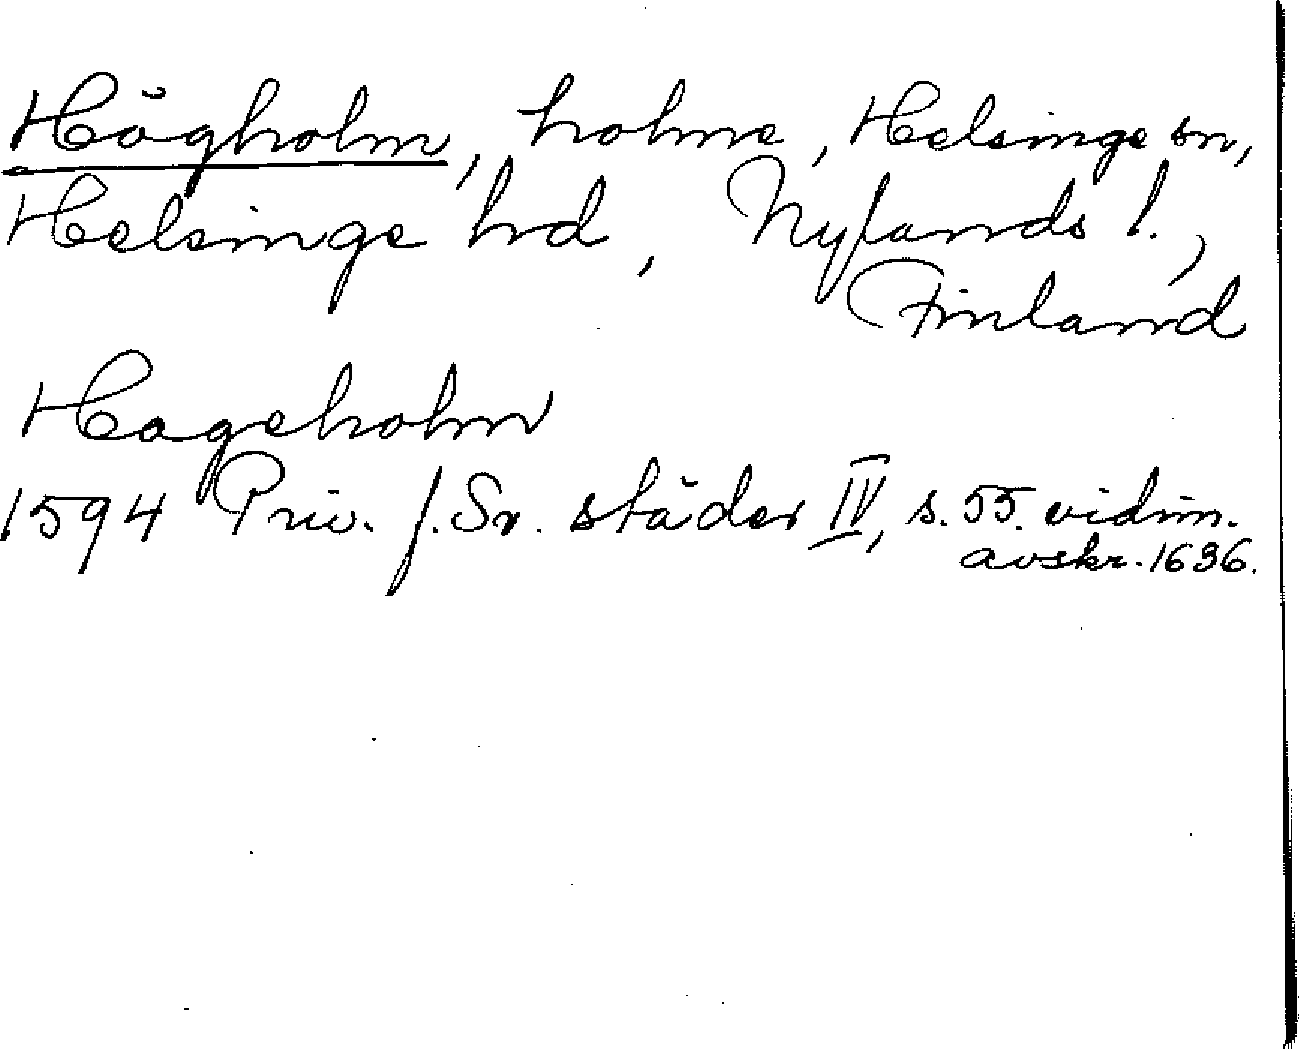 Högholm, holme, Helsinge sn,
Helsinge hd, Nylands l.,
Finland
Hageholm
1594 Priv. f. Sv. städer IV, s. 55. vidim.
avskr. 1636.